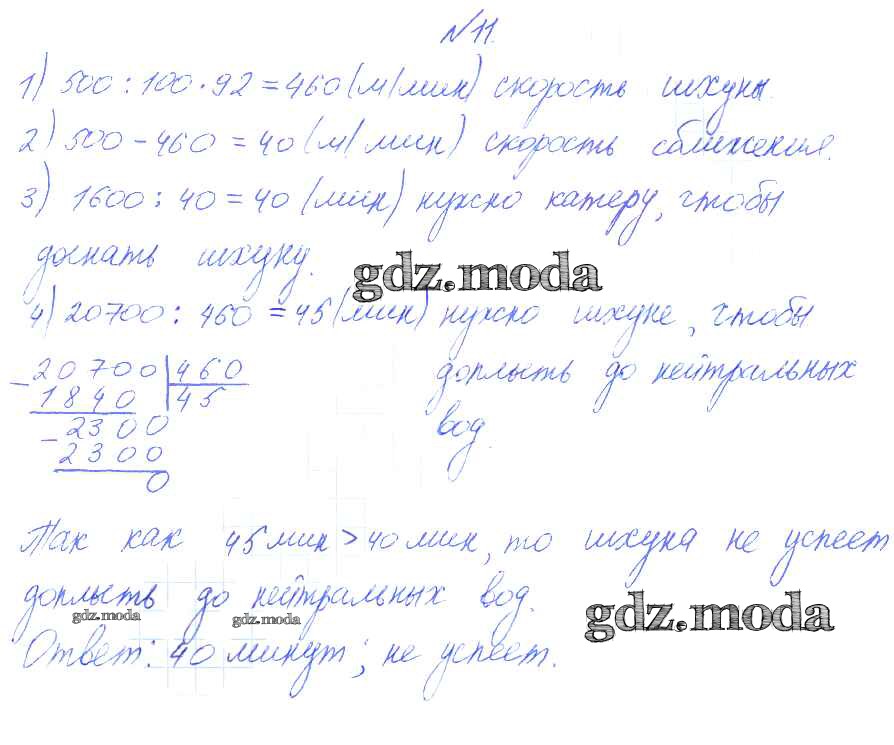 №11.
1) 500 : 100 · 92 = 460 (м/мин) скорость шхуны.
2) 500 - 460 = 40 (м/мин) скорость сближения.
3) 1600 : 40 = 40 (мин) нужно катеру, чтобы
догнать шхуну.
gdz.moda
4) 20700 : 460 = 45 (мин) нужно шхуне, чтобы
доплыть до нейтральных
вод.
- 20700 | 460
1840 | 45
- 2300
2300
0
Так как 45 мин > 40 мин, то шхуна не успеет
доплыть до нейтральных вод.
gdz.moda
gdz.moda
gdz.moda
Ответ: 40 минут; не успеет.